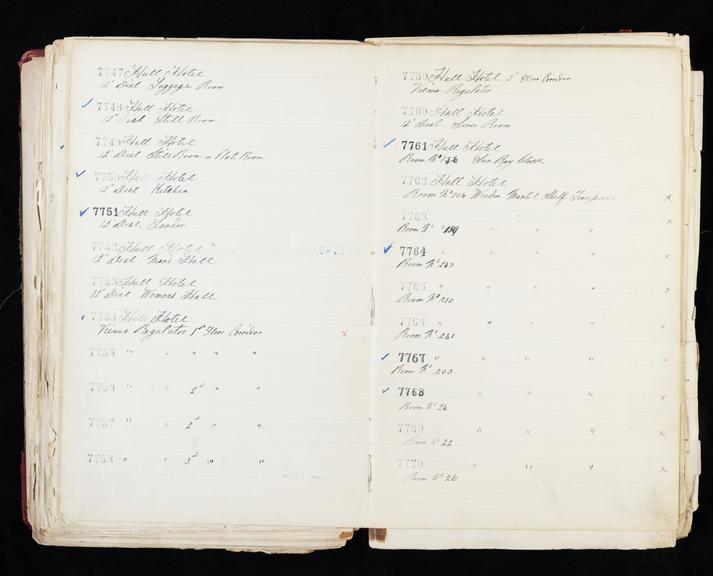 7747 Hull Hotel
12" Dial Luggage Room
7748 Hull Hotel
12" Dial Still Room
7749 Hull Hotel
12" Dial Still Room or Plat Room
7750 Hull Hotel
12" Dial Kitchen
7751 Hull Hotel
12" Dial Larder
7752 Hull Hotel
12" Dial Mens Hall
7753 Hull Hotel
12" Dial Womens Hall
7754 Hull Hotel
Vienna Regulator 1st Floor Corridor
7755 " " " " "
7756 " " 2d " "
7757 " " 2d " "
7758 " " 3d " "
7759 Hull Hotel 3d Floor Corridor
Vienna Regulator
7760 Hull Hotel
12" Dial Linen Room
7761 Hull Hotel
Room No
7762 Hull Hotel
Room No 204 Wooden Mantel Shelf Timepiece
7763 " " "
Room No 189
7764 " " " "
Room No 263
7765 " " " "
Room No 210
7766 " " " "
Room No 261
7767 " " " "
Room No 203
7768 " " " "
Room No 24
7769 " " "
Room No 22
7770 " " "
Room No 26